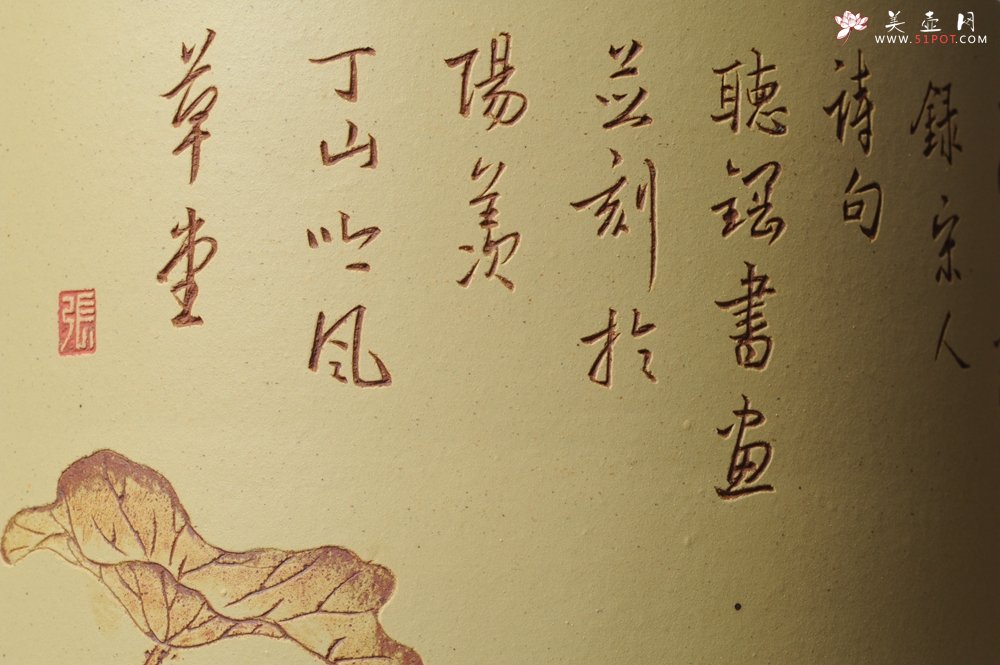 錄宋人
詩句
聽鍾書畫
並刻於
陽羨
丁山吟风
草堂
張
美壶网
WWW.51POT.COM